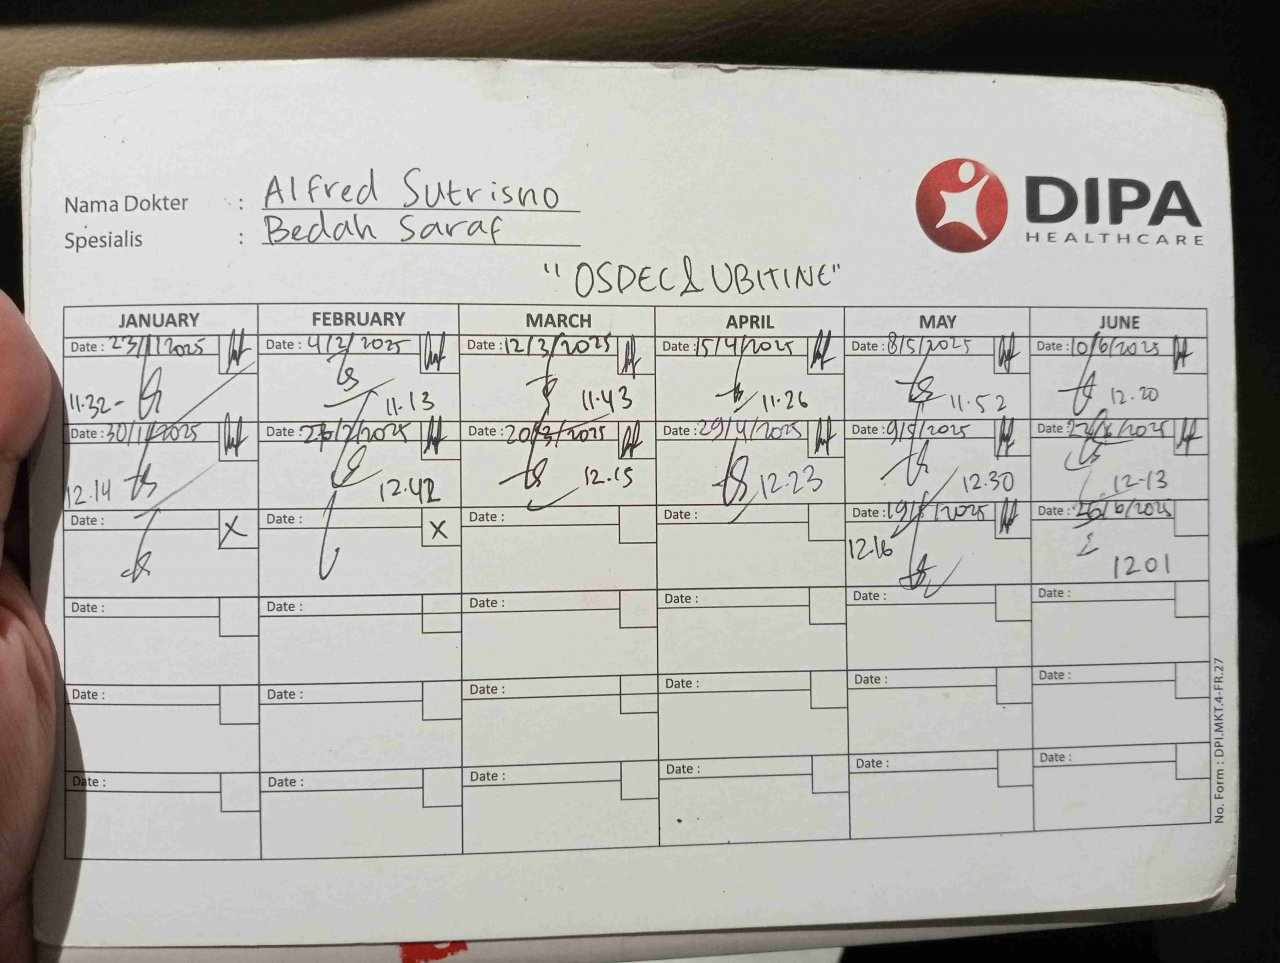 Nama Dokter : Alfred Sutrisno
Spesialis : Bedah Saraf
DIPA
HEALTHCARE
"OSDEC & UBITINE"
JANUARY FEBRUARY MARCH APRIL MAY JUNE
Date : 23/1/2025 Date : 4/2/2025 Date : 12/3/2025 Date : 15/4/2025 Date : 8/5/2025 Date : 10/6/2025
11.32 11.13 11.43 11.26 11.52 12.20
Date : 30/1/2025 Date : /2/2025 Date : 20/3/2025 Date : 29/4/2025 Date : 9/5/2025 Date : /6/2025
12.14 12.42 12.15 12.23 12.30 12.13
Date : X Date : X Date : Date : Date : 19/5/2025 Date : 26/6/2025
12.16 1201
Date : Date : Date : Date : Date : Date :
Date : Date : Date : Date : Date : Date :
Date : Date : Date : Date : Date : Date :
No. Form : DPI.MKT.4-FR.27